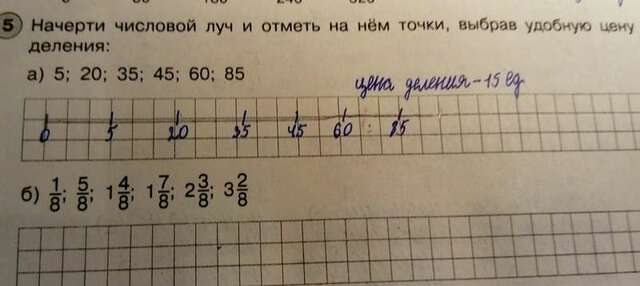 5 Начерти числовой луч и отметь на нём точки, выбрав удобную цену
деления:
а) 5; 20; 35; 45; 60; 85
цена деления - 15 ед
0 5 20 35 45 60 85
б) 1/8; 5/8; 1 4/8; 1 7/8; 2 3/8; 3 2/8